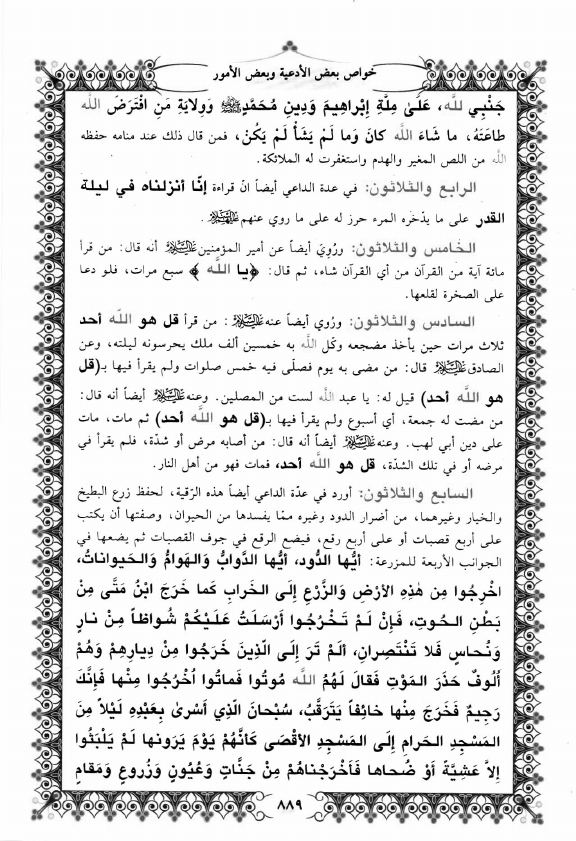 خواص بعض الأدعية وبعض الأمور
جَنْبِي لله، عَلَىٰ مِلَّةِ إِبْراهِيمَ وَدِينِ مُحَمَّدٍ ﷺ وَوِلايَةِ مَنِ افْتَرَضَ الله
طاعَتَهُ، ما شَاءَ الله كانَ وَما لَمْ يَشَأْ لَمْ يَكُنْ، فمن قال ذلك عند منامه حفظه
الله من اللص المغير والهدم واستغفرت له الملائكة.
الرابع والثلاثون: في عدة الداعي أيضاً ان قراءة إنّا أنزلناه في ليلة
القدر على ما يدّخره المرء حرز له على ما روي عنهم عليهم السلام.
الخامس والثلاثون: ورُوِيَ أيضاً عن أمير المؤمنين عليه السلام أنه قال: من قرأ
مائة آية من القرآن من أي القرآن شاء، ثم قال: ﴿يا الله﴾ سبع مرات، فلو دعا
على الصخرة لقلعها.
السادس والثلاثون: ورُوي أيضاً عنه عليه السلام: من قرأ قل هو الله أحد
ثلاث مرات حين يأخذ مضجعه وكّل الله به خمسين ألف ملك يحرسونه ليلته، وعن
الصادق عليه السلام قال: من مضى به يوم فصلّى فيه خمس صلوات ولم يقرأ فيها بـ(قل
هو الله أحد) قيل له: يا عبد الله لست من المصلين. وعنه عليه السلام أيضاً أنه قال:
من مضت له جمعة، أي أسبوع ولم يقرأ فيها بـ(قل هو الله أحد) ثم مات، مات
على دين أبي لهب. وعنه عليه السلام أيضاً أنه قال: من أصابه مرض أو شدّة، فلم يقرأ في
مرضه أو في تلك الشدّة، قل هو الله أحد، فمات فهو من أهل النار.
السابع والثلاثون: أورد في عدّة الداعي أيضاً هذه الرّقية، لحفظ زرع البطيخ
والخيار وغيرهما، من أضرار الدود وغيره ممّا يفسدها من الحيوان، وصفتها أن يكتب
على أربع قصبات أو على أربع رقع، فيضع الرقع في جوف القصبات ثم يضعها في
الجوانب الأربعة للمزرعة: أيُّها الدُّود، أيُّها الدَّوابُّ وَالهَوامُّ وَالحَيوانات،
اخْرِجُوا مِن هٰذِهِ الأَرْضِ وَالزَّرْعِ إِلَى الخَرابِ كَما خَرَجَ ابْنُ مَتَّى مِنْ
بَطْنِ الحُوتِ، فَإِنْ لَمْ تَخْرُجُوا أَرْسَلْتُ عَلَيْكُمْ شُواظاً مِنْ نارٍ
وَنُحاسٍ فَلا تَنْتَصِرانِ، أَلَمْ تَرَ إِلَى الَّذِينَ خَرَجُوا مِنْ دِيارِهِمْ وَهُمْ
أُلُوفٌ حَذَرَ المَوْتِ فَقالَ لَهُمُ الله مُوتُوا فَماتُوا اُخْرُجُوا مِنْها فَإِنَّكَ
رَجِيمٌ فَخَرَجَ مِنْها خائِفاً يَتَرَقَّبُ، سُبْحَانَ الَّذِي أَسْرىٰ بِعَبْدِهِ لَيْلاً مِنَ
المَسْجِدِ الحَرامِ إِلَى المَسْجِدِ الأَقْصَى كَأَنَّهُمْ يَوْمَ يَرَونها لَمْ يَلْبَثُوا
إِلاَّ عَشِيَّةً أَوْ ضُحاها فَأَخْرَجْناهُمْ مِنْ جَنَّاتٍ وَعُيُونٍ وَزُروعٍ وَمَقامٍ
٨٨٩